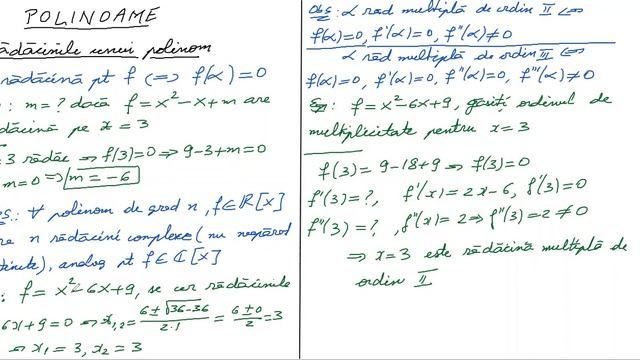 POLINOAME
ădăcinile unui polinom
rădăcină pt f ⇔ f(α)=0
: m=? dacă f=x²-x+m are
dăcină pe x=3
=3 rădăc ⇒ f(3)=0 ⇒ 9-3+m=0
m=0 ⇒ m=-6
s.: ∀ polinom de grad n, f∈ℝ[x]
re n rădăcini complexe (nu neapărat
tincte), analog pt f∈ℂ[x]
: f=x²-6x+9, se cer rădăcinile
6x+9=0 ⇒ x₁,₂=(6±√36-36)/2·1 = (6±0)/2 =3
⇒ x₁=3, x₂=3
Obs: α răd multiplă de ordin II ⇔
f(α)=0, f'(α)=0, f''(α)≠0
α răd multiplă de ordin III ⇔
f(α)=0, f'(α)=0, f''(α)=0, f'''(α)≠0
Ex: f=x²-6x+9, găsiți ordinul de
multiplicitate pentru x=3
f(3)=9-18+9 ⇒ f(3)=0
f'(3)=?, f'(x)=2x-6, f'(3)=0
f''(3)=?, f''(x)=2 ⇒ f''(3)=2≠0
⇒ x=3 este rădăcină multiplă de
ordin II